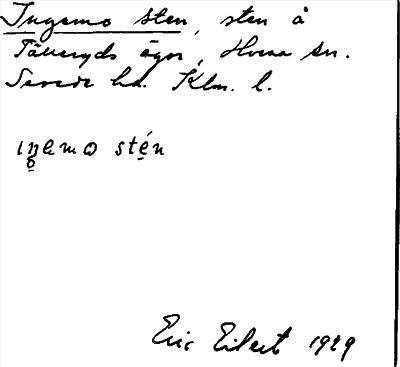 Ingemo sten, sten å
Tälleryds ägor, Hvena sn.
Sevede hd. Klm. l.
ıŋemo stén
Eric Eilert 1929